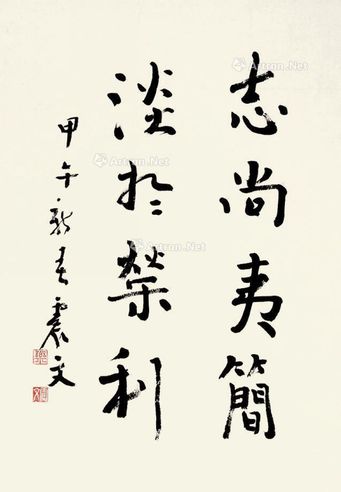 志尚夷簡
淡於榮利
甲午新春震文
Artron.Net
Artron.Net
Artron.Net